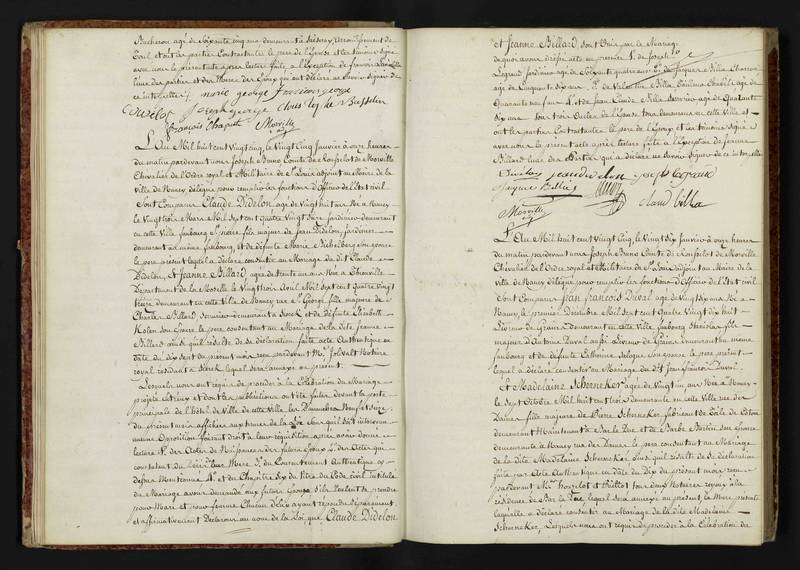 Bucheron agé de Soixante cinq ans demeurant à arrondissement de
Toul, et ont les parties Contractantes le pere de l'Epouse et les témoins signé
avec nous le présent acte après lecture faite à l'Exception de
l'une des parties et des Mere de Epoux qui ont déclaré ne savoir signer de
ce interpellés. marie george
Didelot Joseph george
françois Chapuit Morville
L'An Mil huit cent Vingt cinq, le Vingt cinq Janvier à onze heures
du matin pardevant nous Joseph Bruno Comte de Rouſselot de Morville
Chevalier de l'Ordre royal et Militaire de St. Louis adjoint au Maire de la
Ville de Nancy délégué pour remplir les fonctions d'Officier de l'Etat civil
Sont Comparus Claude Didelon agé de Vingt huit ans Né à Nancy
le Vingt trois Mars Mil Sept cent quatre Vingt dix Sept jardinier demeurant
en cette Ville faubourg St. pierre fils majeur de Jean Didelon, jardinier
demeurant au même faubourg, et de défunte Marie son épouse
le pere présent lequel a déclaré consentir au Mariage du dit Claude
Didelon, Et Jeanne Billard, agée de trente un ans Née à Thionville
Département de la Moselle le Vingt trois Avril Mil Sept cent quatre Vingt
treize demeurant en cette Ville de Nancy rue St. George fille majeure de
Charles Billard, Serrurier demeurant à Sierck et de défunte Elisabeth
Kolen son épouse, le pere consentant au Mariage de la dite Jeanne
Billard ainsi qu'il résulte de sa déclaration faite acte Authentique en
date du dix Sept du présent mois reçu pardevant Me. Notaire
royal résidant à Sierck lequel sera annexé au présent.
Lesquels nous ont requis de procéder à la Célébration du Mariage
projetté entr'eux et dont les publications ont été faites devant la porte
principale de l'hôtel de Ville de cette Ville les Dimanches Neuf et Seize
du présent mois affichées aux termes de la Loi sans qu'il soit intervenu
aucune Opposition faisant droit à leur réquisition après avoir donné
lecture 1º. des Actes de Naissance des futurs Epoux 2º. des Actes qui
constatent du Décès des Mere 3º. du Consentement Authentique ci
dessus Mentionné 4º. et du Chapitre Six du titre du Code civil intitulé
du Mariage avons demandé aux futurs Epoux s'ils veulent se prendre
pour Mari et pour femme Chacun d'eux ayant répondu séparément
et affirmativement Déclarons au nom de la Loi que Claude Didelon
et Jeanne Billard, Sont Unis par le Mariage
de quoi avons dressé acte en présence 1º. de Joseph
Jardinier agé de Soixante quatre ans 2º. de Jacques Billa
agé de Cinquante Six ans 3º. de Valentin Billa agé de
Quarante un ans 4º. et de Jean Claude Billa agé de Quarante
Six ans tous trois Oncles de l'Epouse tous demeurant en cette Ville et
ont les parties Contractantes le pere de l'Epoux et les témoins signé
avec nous le présent acte après lecture faite à l'Exception de Jeanne
Billard l'une des Parties qui a déclaré ne savoir signer de ce interpellée
Didelon jean didelon joseph
jacques Billa
Morville claud billa
L'An Mil huit cent Vingt Cinq, le Vingt Six Janvier à onze heures
du matin pardevant nous Joseph Bruno Comte de Rouſselot de Morville
Chevalier de l'Ordre royal et Militaire de St. Louis adjoint au Maire de la
Ville de Nancy délégué pour remplir les fonctions d'Officier de l'Etat civil
Sont Comparus Jean François Duval agé de Vingt Six ans Né à
Nancy le premier Decembre Mil Sept cent Quatre Vingt dix huit
Livreur de Grains demeurant en cette Ville, faubourg Stanislas fils
majeur d'Antoine Duval aussi Livreur de Grains demeurant au même
faubourg et de défunte Catherine son épouse le pere présent
lequel a déclaré consentir au Mariage du dit Jean françois Duval.
Et Madelaine Scherneker agée de Vingt un ans Née à Nancy
le Sept Octobre Mil huit cent trois demeurant en cette Ville rue des
Dames fille majeure de Pierre Scherneker fabricant de Toile de Coton
demeurant Maintenant à Bar le Duc et de Barbe son Epouse
demeurante à Nancy rue des Dames le pere consentant au Mariage
de la dite Madelaine Scherneker ainsi qu'il résulte de sa déclaration
faite par Acte Authentique en date du Dix du présent mois reçu
pardevant Mes. et tous deux Notaires royaux à la
résidence de Bar le Duc lequel sera annexé au présent la Mere présente
laquelle a déclaré consentir au Mariage de la dite Madelaine
Scherneker, Lesquels nous ont requis de procéder à la Célébration du